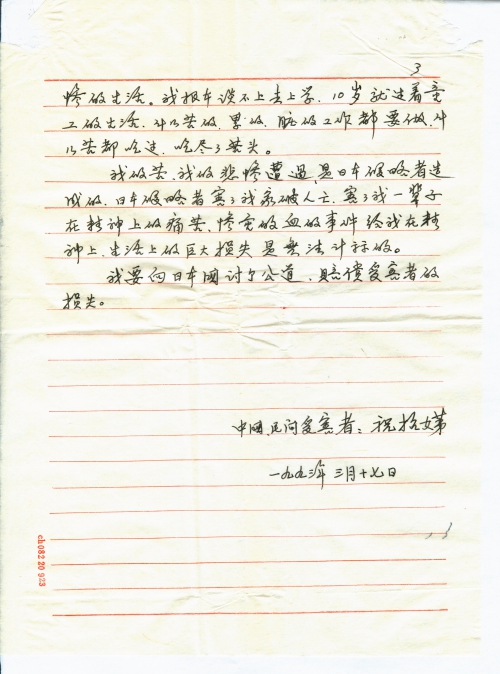 3
惨的生活。我根本谈不上去上学，10岁就过着童
工的生活，什么苦的、累的、脏的工作都要做，什
么苦都吃过，吃尽了苦头。
我的苦，我的悲惨遭遇，是日本侵略者造
成的，日本侵略者害了我家破人亡，害了我一辈子
在精神上的痛苦、惨重的血的事件给我在精
神上、生活上的巨大损失是无法计标的。
我要向日本国讨与公道，赔偿受害者的
损失。
中国民间受害者：祝招娣
一九九三年三月十七日
cb082 20 923